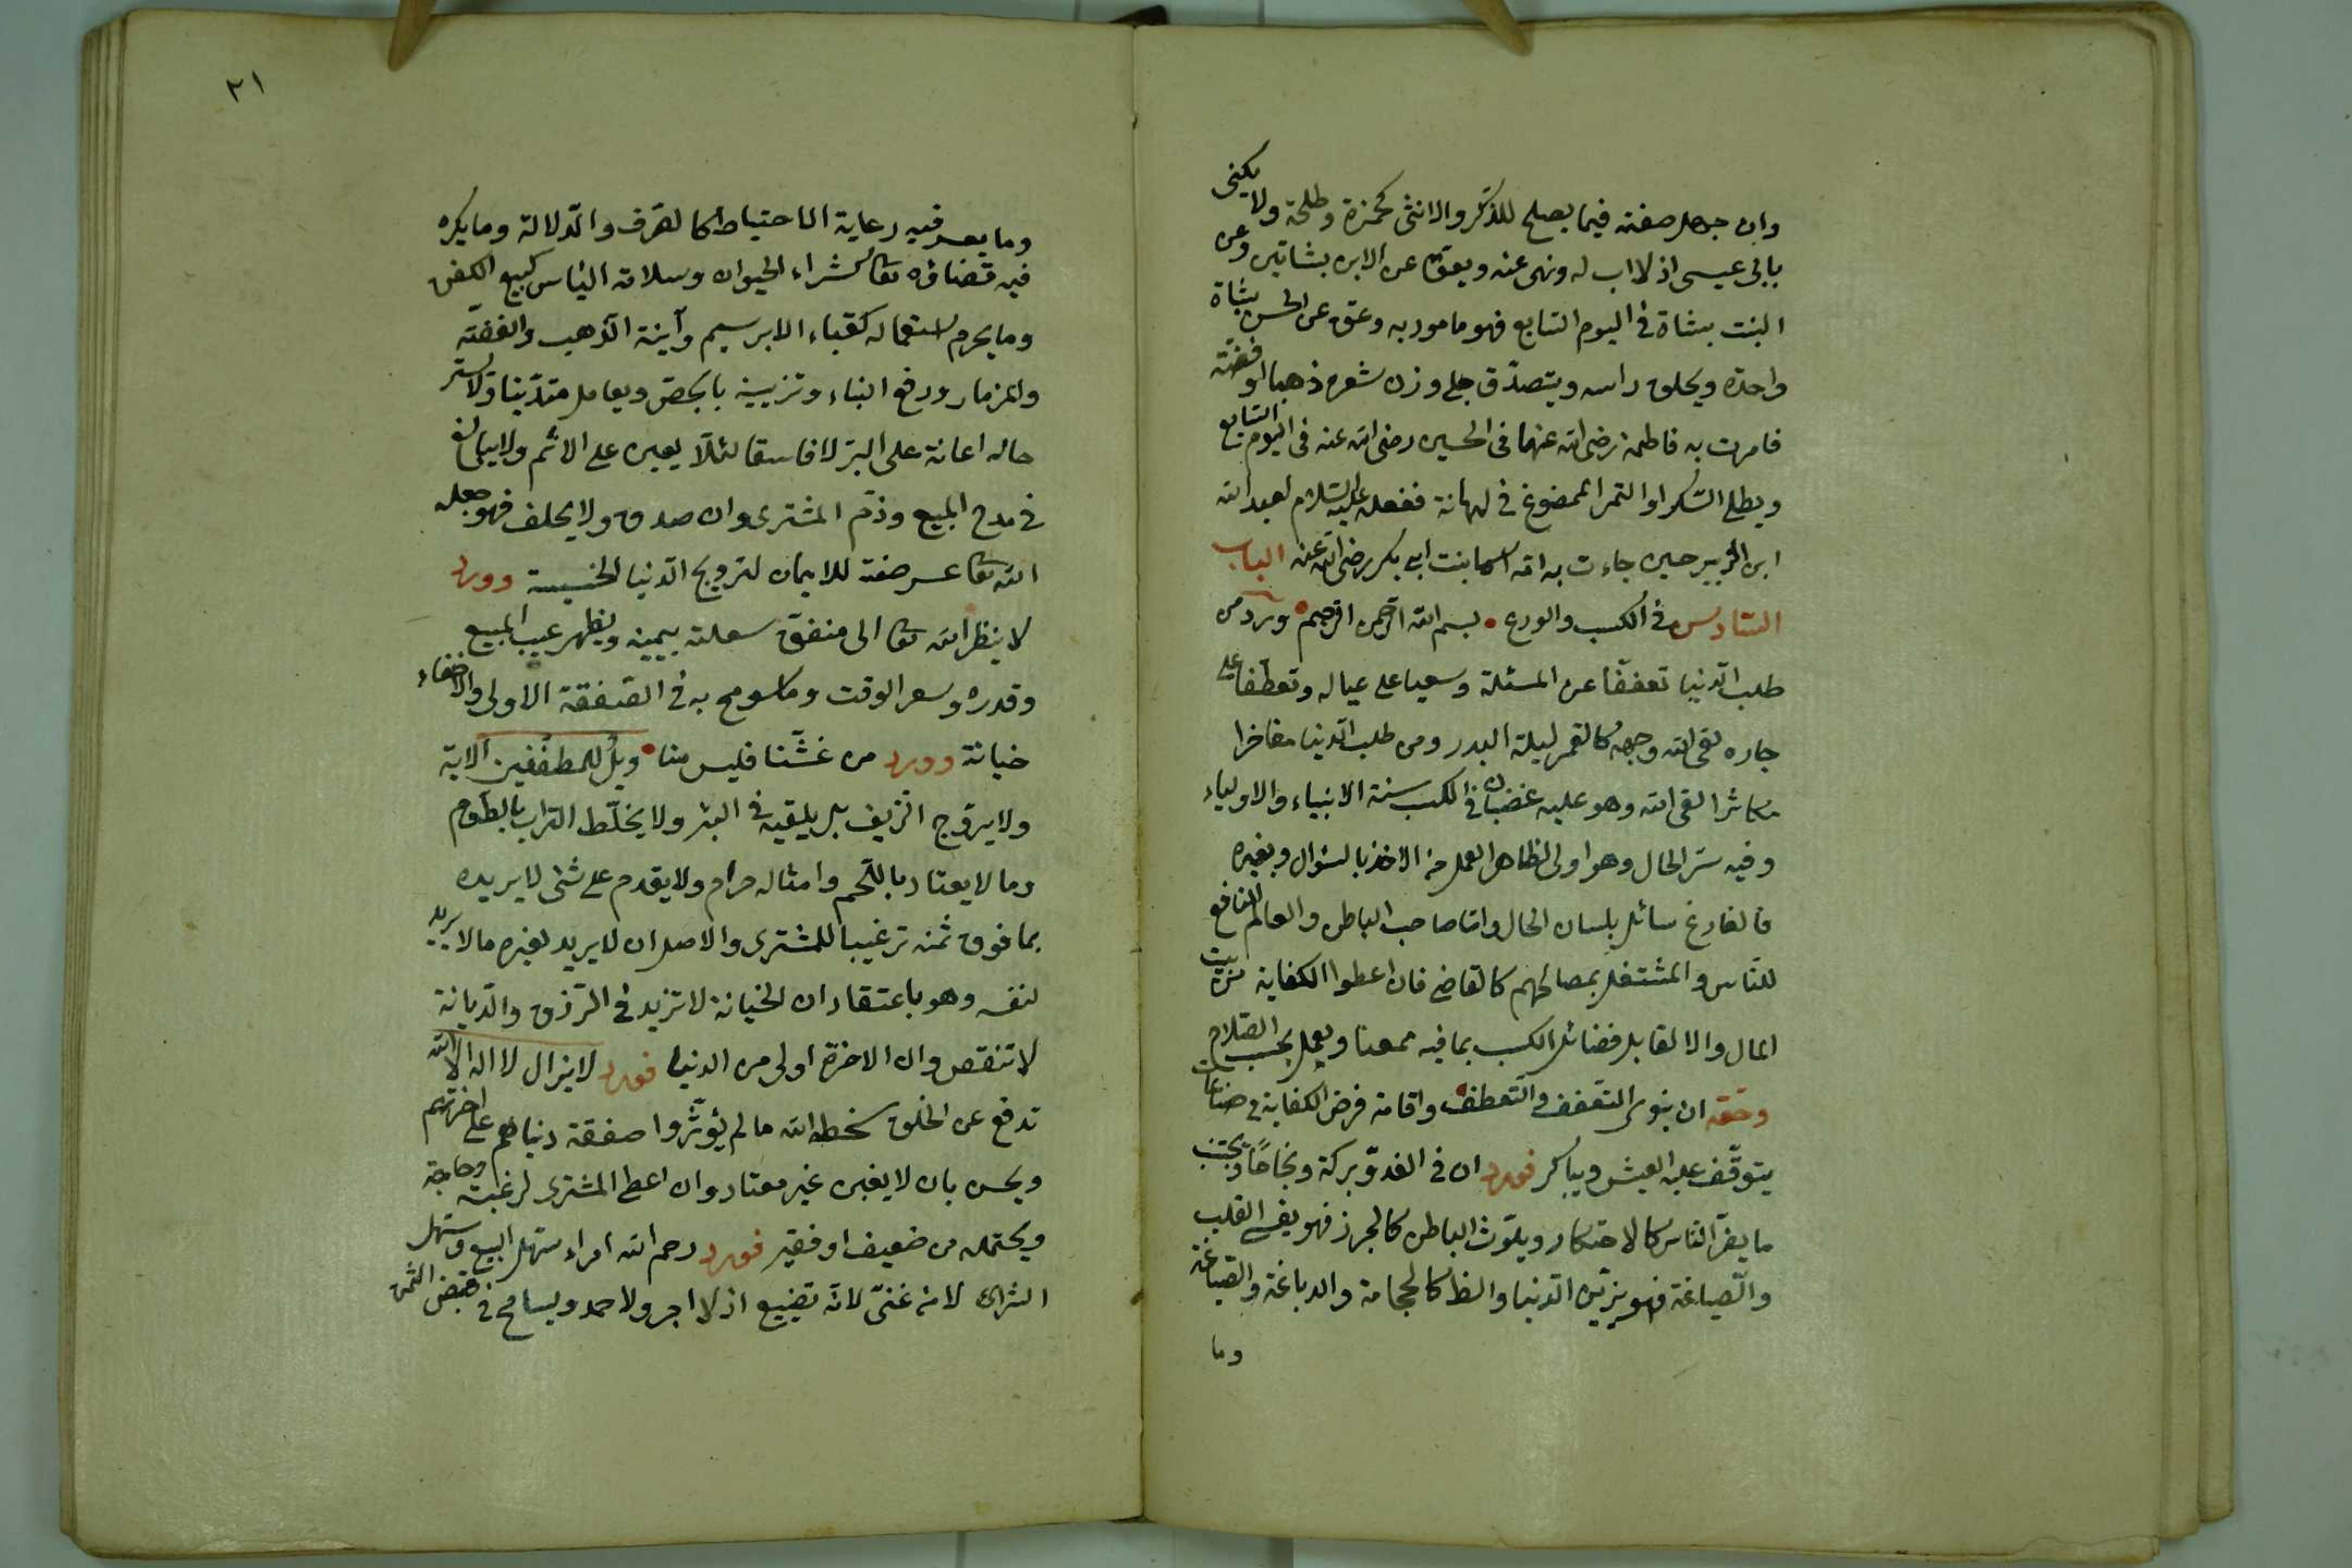 وان جهل صفته فيما يصلح للذكر والانثى كحمزة وطلحة ولا يكنى
بابى عيسى اذ لا اب له ونهى عنه ويعق عن الابن بشاتين وعن
البنت بشاة فى اليوم السابع فهو مامور به وعق عن الحسن بشاة
واحدة ويحلق راسه ويتصدق على وزن شعره ذهبا او فضة
فامرت به فاطمة رضى الله عنها فى الحسين رضى الله عنه فى اليوم السابع
ويطلى السكر او التمر الممضوغ فى لهاته ففعله عليه السلام لعبد الله
ابن الزبير حين جاءت به امه اسما بنت ابى بكر رضى الله عنه الباب
السادس فى الكسب والورع بسم الله الرحمن الرحيم ورد من
طلب الدنيا تعففا عن المسئلة وسعيا على عياله وتعطفا على
جاره لقى الله وجهه كالقمر ليلة البدر ومن طلب الدنيا مفاخرا
مكاثرا لقى الله وهو عليه غضبان فى الكسب سنة الانبياء والاولياء
وفيه ستر الحال وهو اولى لظاهر العمل من الاخذ بالسؤال وبغيره
فالفارغ سائل بلسان الحال واما صاحب الباطن والعالم النافع
للناس والمشتغل بمصالحهم كالقاضى فان اعطوا الكفاية من بيت
المال والا لقابل فضائل الكسب بما فيه ممعنا ويعمل بحسب الصلاح
وحقه ان ينوى التعفف والتعطف واقامة فرض الكفاية فى صناعات
يتوقف عليه العيش ويباكر فورد ان فى الغدو بركة ونجاحا ويجتنب
ما يضر الناس كالاحتكار ويلوث الباطن كالجزر فهو يقسى القلب
والصياغة فهو يزين الدنيا والظا كالحجامة والدباغة والصباغة
وما
٢١
وما يعسر فيه رعاية الاحتياط كالصرف والدلالة وما يكره
فيه قضاؤه تعالى كشراء الحيوان وسلامة الناس كبيع الكفن
وما يحرم استعماله كقباء الابريسيم وآنية الذهب والفضة
والمزمار ورفع البناء وتزيينه بالجص ويعامل متدينا ولا ستر
حاله اعانة على البر لا فاسقا لئلا يعين على الاثم ولا يبالغ
فى مدح المبيع وذم المشترى وان صدق ولا يحلف فهو جعل
الله تعالى عرضة للايمان لترويج الدنيا الخسيسة وورد
لا ينظر الله تعالى الى منفق سلعته بيمينه ويظهر عيب المبيع
وقدره وسعر الوقت وما سومح به فى الصفقة الاولى والاخفاء
خيانة وورد من غشنا فليس منا ويل للمطففين الاية
ولا يروج الزيف بل يلقيه فى البئر ولا يخلط التراب بالطعام
وما لا يعتاد باللحم وامثاله حرام ولا يقدم على شئ لا يريده
بما فوق ثمنه ترغيبا للمشترى والاصل ان لا يريد لغيره ما لا يريد
لنفسه وهو باعتقاد ان الخيانة لا تزيد فى الرزق والديانة
لا تنقص وان الاخرة اولى من الدنيا فورد لا يزال لا اله الا الله
تدفع عن الخلق سخط الله ما لم يؤثروا صفقة دنياهم على اخرتهم
ويحسن بان لا يغبن غير معتاد وان اعطى المشترى لرغبته وحاجة
ويحتمله من ضعيف او فقير فورد رحم الله امراء سهل البيع وسهل
الشراء لا من غنى لانه تضييع اذ لا اجر ولا حمد ويسامح فى قبض الثمن